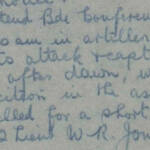 tend Bde Conferen
am in artiller
to attack reapt
after dawn, w
ition in the as
lled for a short
Lieut W. R. Jon